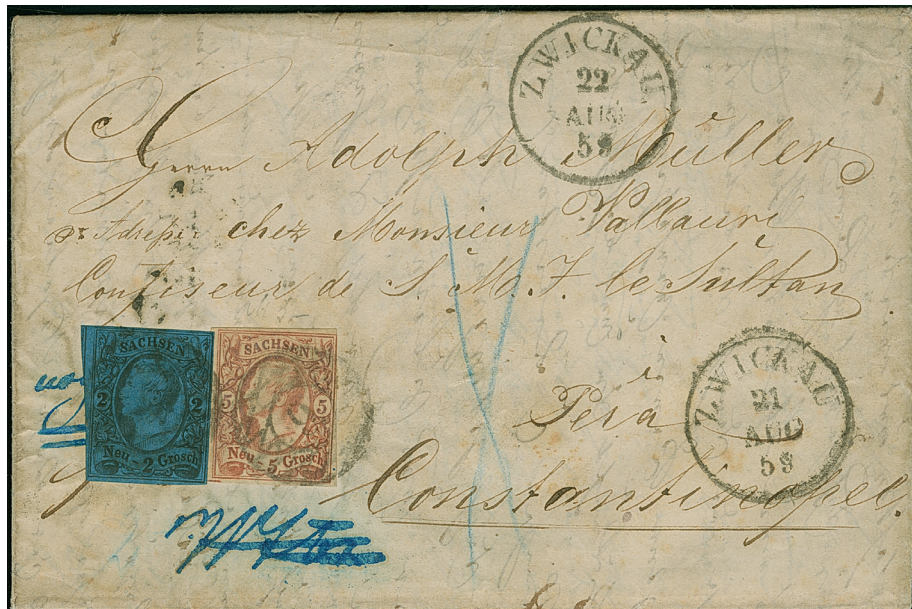 ZWICKAU
22
AUG
59
Herrn Adolph Müller
pr Adresse chez Monsieur Vallauri
Confiseur de S. M. I. le Sultan
à
Pera
Constantinopel.
ZWICKAU
21
AUG
59
SACHSEN
2 2
Neu-2 Grosch
SACHSEN
5 5
Neu-5 Grosch